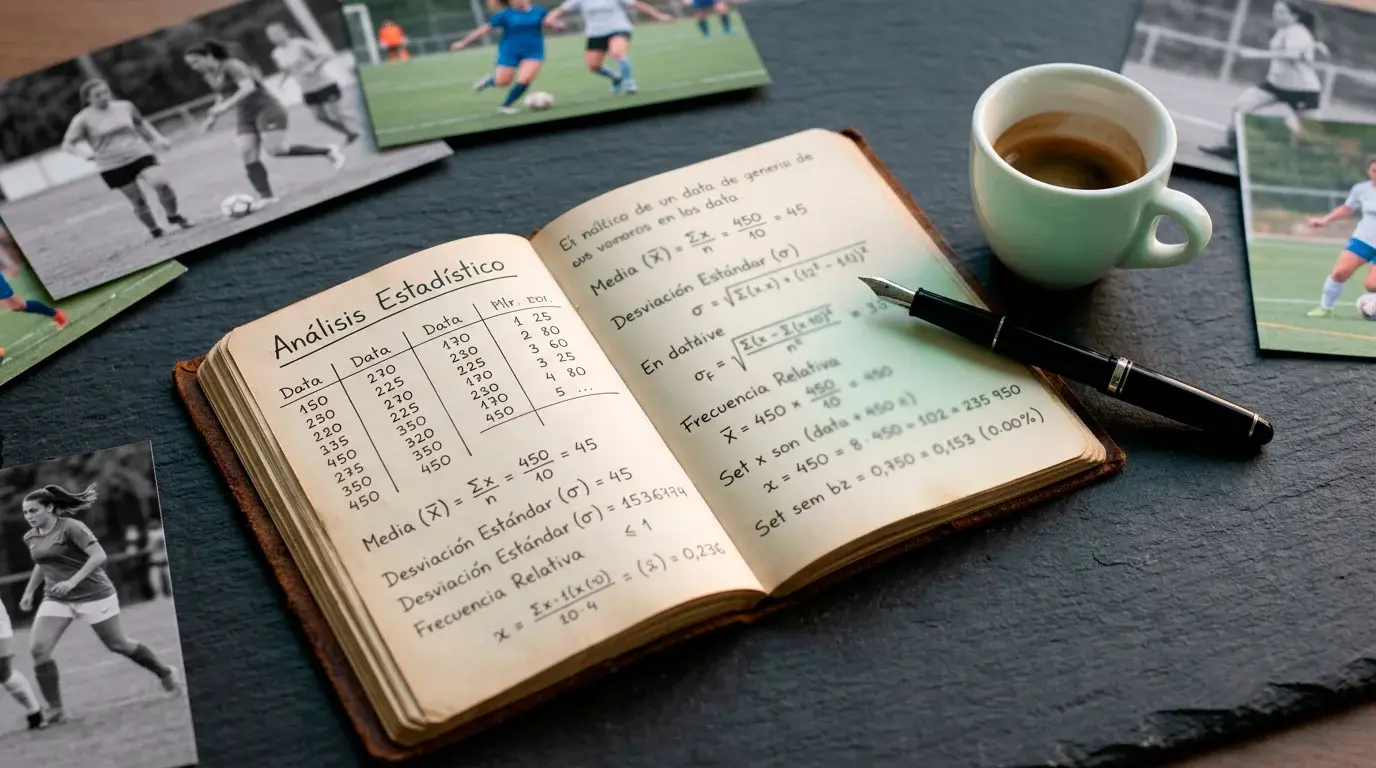 Análisis Estadístico
Data Data Data Plr. eoi.
150 270 170 1 25
280 225 230 2 80
220 270 225 3 60
135 225 170 3 25
450 350 230 4 80
275 320 170 5 ...
350 450 450
450
Media (x̄) = Σx/n = 450/10 = 45
Desviación Estándar (σ) = 45
Desviación Estándar (σ) = 1536774
Frecuencia Relativa ≤ 1
x = / 20·4 = (x̄) = 0,236
Ei náltico de un data de generia de
sus vomoros en los data.
Media (x̄) = Σx/n = 450/10 = 45
Desviación Estándar (σ)
σ = √Σ(x x) + (12² - 10)²
En datative
σF = √ / n² = 35
Frecuencia Relativa
x̄ = 450 × 450/10 = 450
Set x son (data + 450 x)
x = 450 = 8 · 450 = 102 = 235 950
Set sem bz = 0,750 = 0,153 (0.00%)